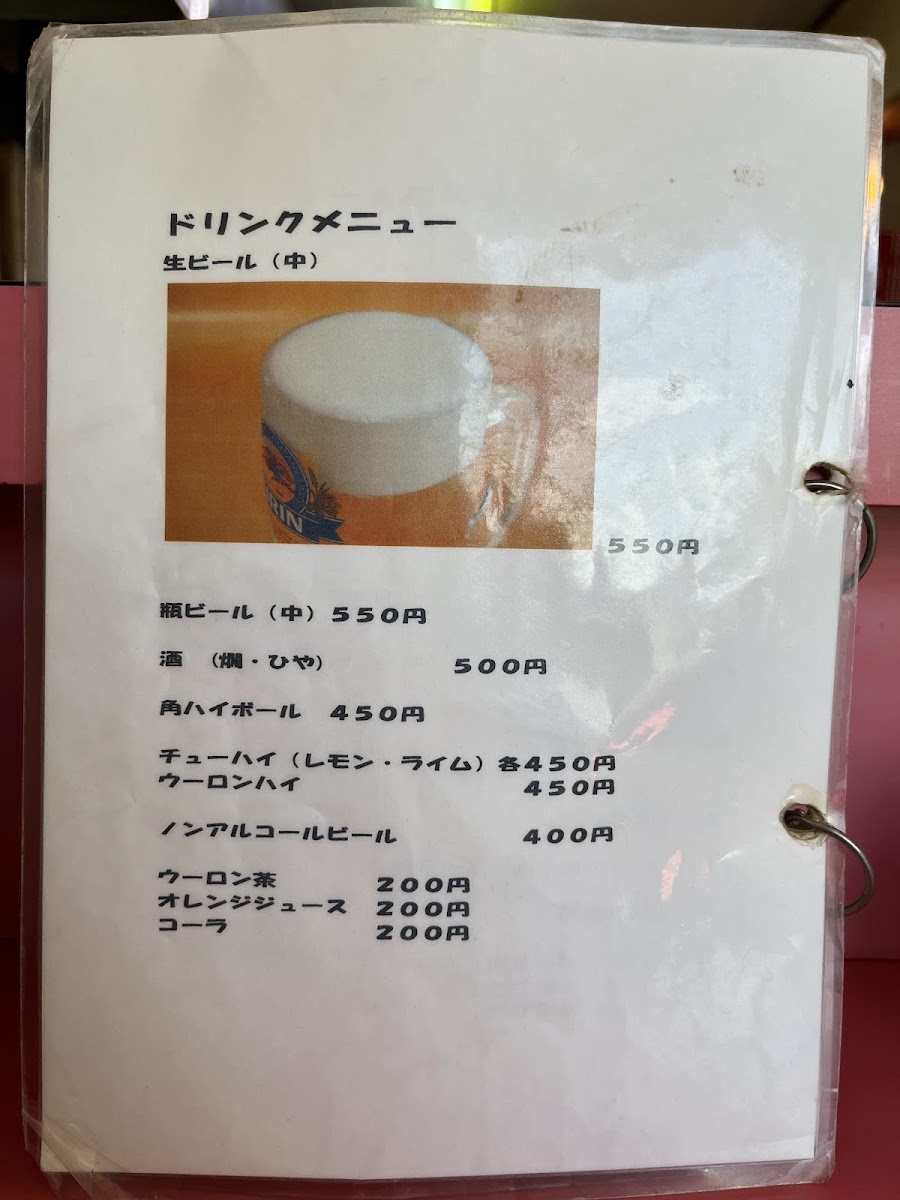 ドリンクメニュー
生ビール（中）
RIN
５５０円
瓶ビール（中）５５０円
酒　（燗・ひや）　５００円
角ハイボール　４５０円
チューハイ（レモン・ライム）各４５０円
ウーロンハイ　４５０円
ノンアルコールビール　４００円
ウーロン茶　２００円
オレンジジュース　２００円
コーラ　２００円